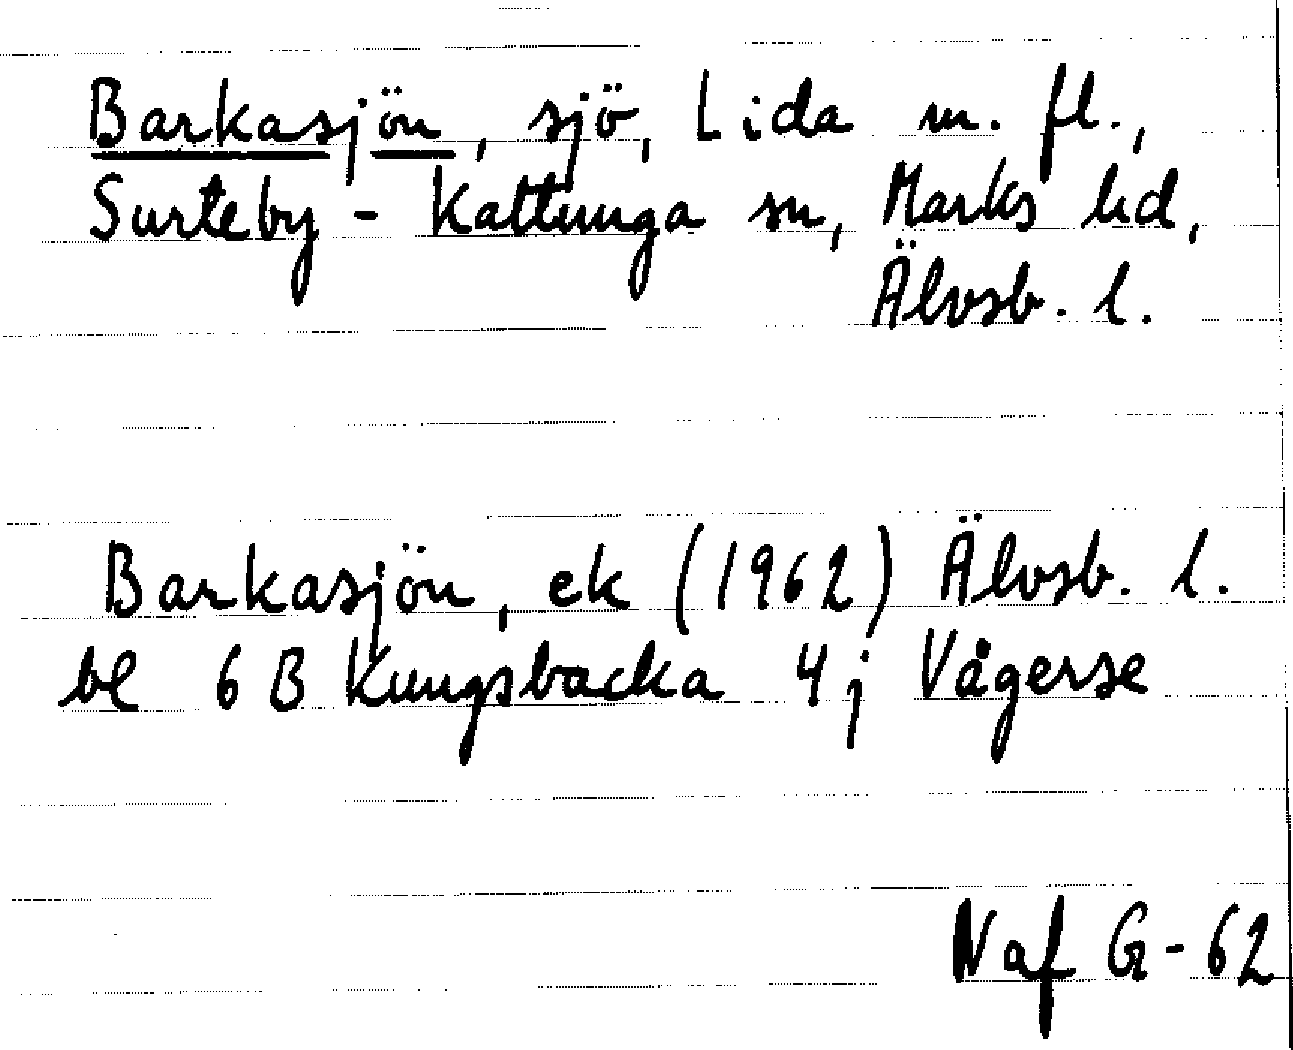 Barkasjön, sjö, Lida m. fl.,
Surteby - Kattunga sn, Marks hd,
Älvsb. l.
Barkasjön, ek (1962) Älvsb. l.
bl 6 B Kungsbacka 4j Vågerse
Naf G-62